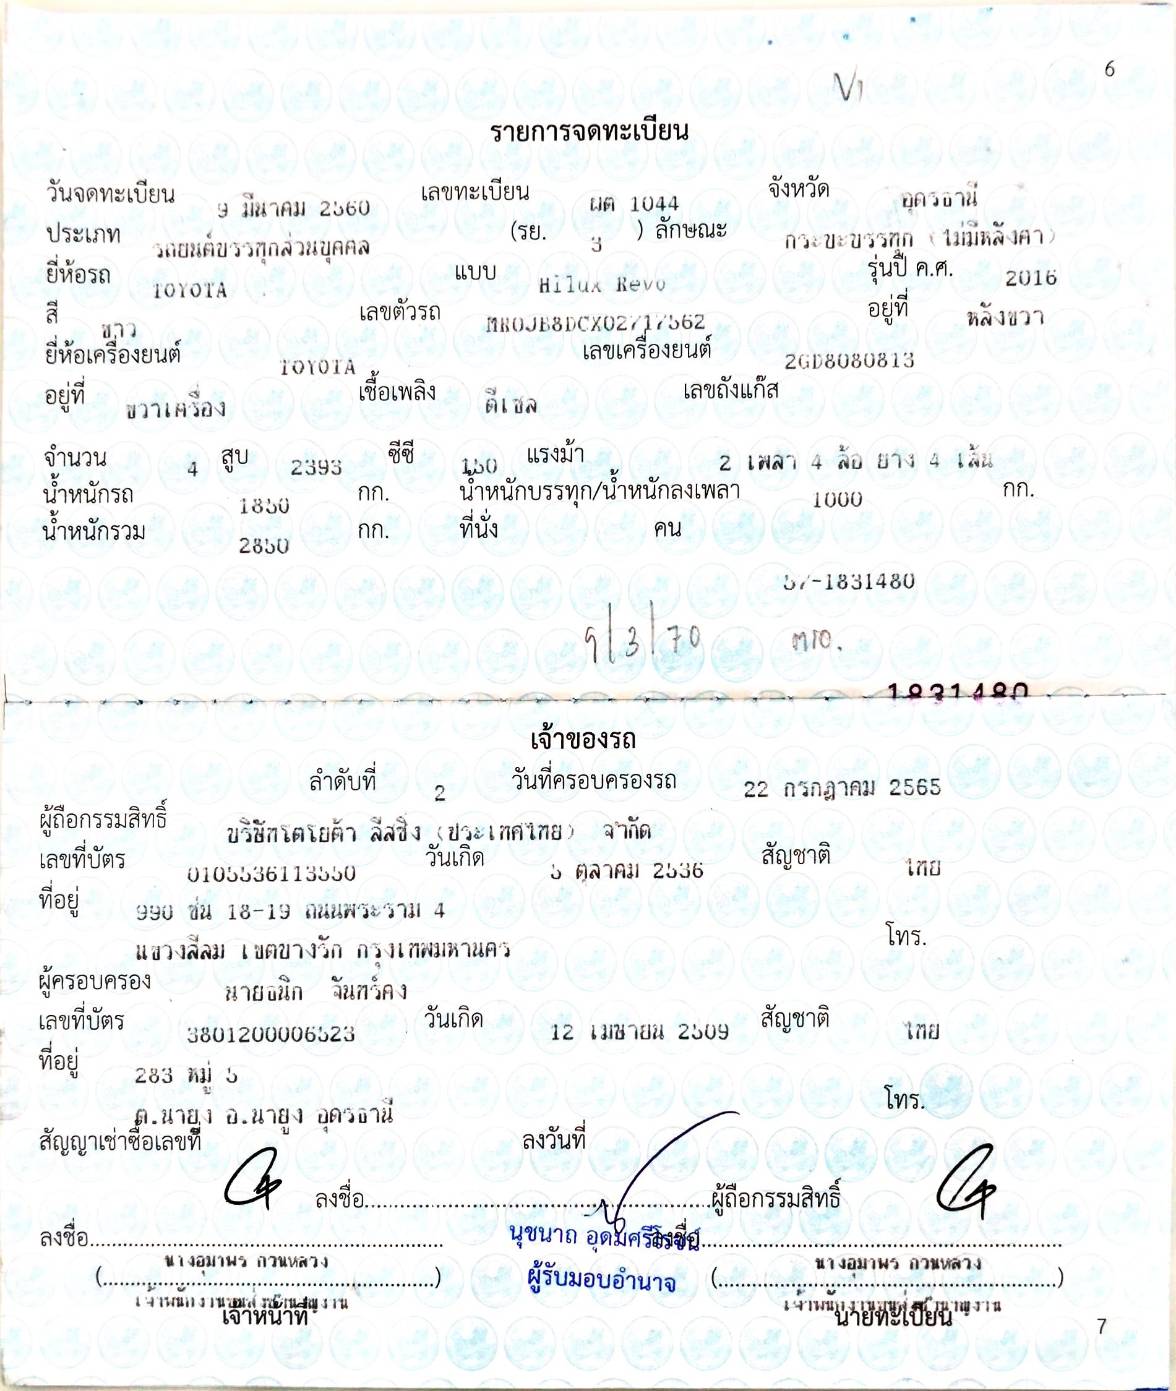 6
V1
รายการจดทะเบียน
วันจดทะเบียน 9 มีนาคม 2560 เลขทะเบียน ผต 1044 จังหวัด อุดรธานี
ประเภท รถยนต์บรรทุกส่วนบุคคล (รย. 3 ) ลักษณะ กระบะบรรทุก (ไม่มีหลังคา)
ยี่ห้อรถ TOYOTA แบบ Hilux Revo รุ่นปี ค.ศ. 2016
สี ขาว เลขตัวรถ MR0JB8DCX02717562 อยู่ที่ หลังขวา
ยี่ห้อเครื่องยนต์ TOYOTA เลขเครื่องยนต์ 2GD8080813
อยู่ที่ ขวาเครื่อง เชื้อเพลิง ดีเซล เลขถังแก๊ส
จำนวน 4 สูบ 2393 ซีซี 150 แรงม้า 2 เพลา 4 ล้อ ยาง 4 เส้น
น้ำหนักรถ 1850 กก. น้ำหนักบรรทุก/น้ำหนักลงเพลา 1000 กก.
น้ำหนักรวม 2850 กก. ที่นั่ง คน
57-1831480
9/3/70 ตรอ.
1831480
เจ้าของรถ
ลำดับที่ 2 วันที่ครอบครองรถ 22 กรกฎาคม 2565
ผู้ถือกรรมสิทธิ์ บริษัทโตโยต้า ลีสซิ่ง (ประเทศไทย) จำกัด
เลขที่บัตร 0105536113550 วันเกิด 5 ตุลาคม 2536 สัญชาติ ไทย
ที่อยู่ 990 ชั้น 18-19 ถนนพระราม 4
แขวงสีลม เขตบางรัก กรุงเทพมหานคร โทร.
ผู้ครอบครอง นายธนิก จันทร์คง
เลขที่บัตร 3801200006523 วันเกิด 12 เมษายน 2509 สัญชาติ ไทย
ที่อยู่ 283 หมู่ 5
ต.นายูง อ.นายูง อุดรธานี โทร.
สัญญาเช่าซื้อเลขที่ ลงวันที่
ลงชื่อ ผู้ถือกรรมสิทธิ์
ลงชื่อ นุชนาถ อุดมศรีโรจน์ ลงชื่อ
นางอุมาพร กวนหลวง ผู้รับมอบอำนาจ นางอุมาพร กวนหลวง
เจ้าพนักงานขนส่งชำนาญงาน เจ้าพนักงานขนส่งชำนาญงาน
เจ้าหน้าที่ นายทะเบียน
7